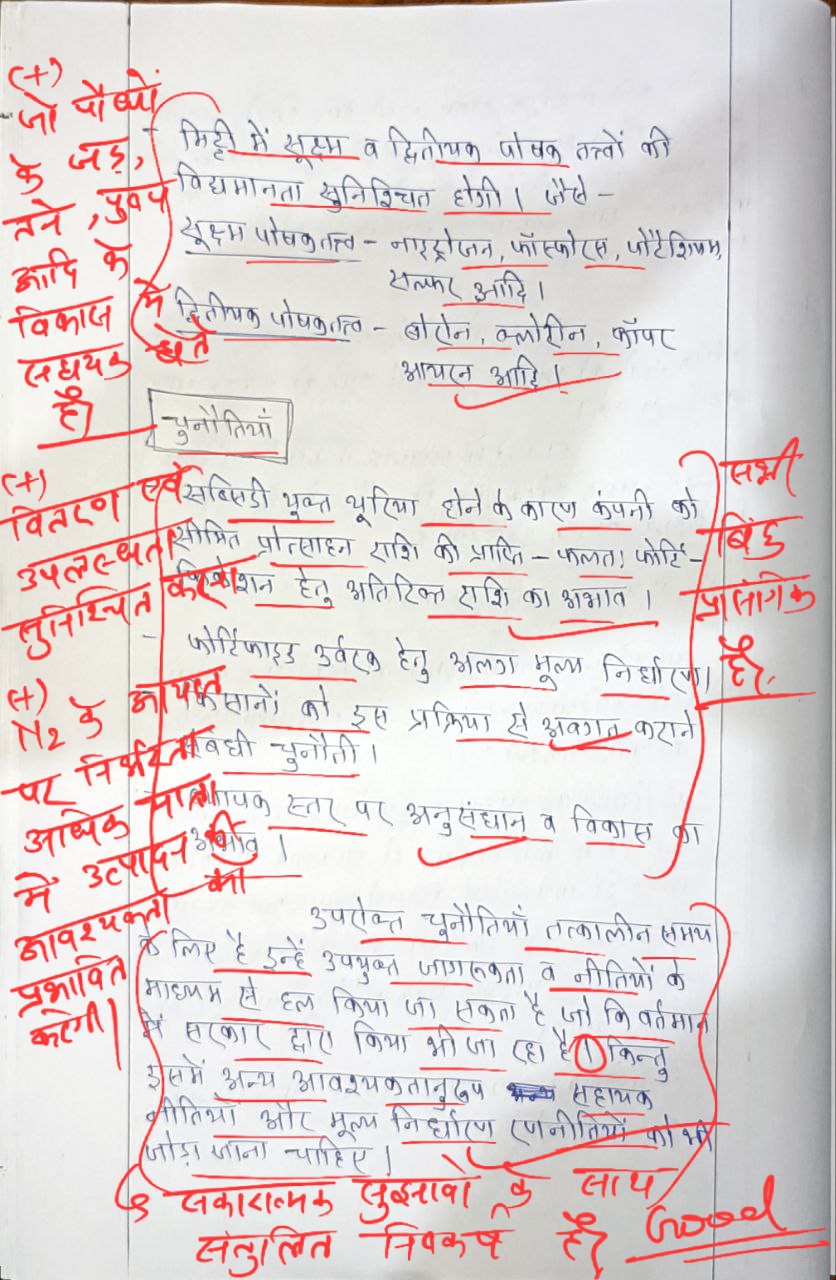 (+)
जो पौधों
के जड़,
तने, पुष्प
आदि के
विकास में
सहायक होते
हैं।
- मिट्टी में सूक्ष्म व द्वितीयक पोषक तत्वों की
विद्यमानता सुनिश्चित होगी। जैसे -
सूक्ष्म पोषकतत्व - नाइट्रोजन, फॉस्फोरस, पोटैशियम,
सल्फर आदि।
द्वितीयक पोषकतत्व - बोरोन, क्लोरीन, कॉपर
आयरन आदि।
चुनौतियाँ
(+)
वितरण एवं
उपलब्धता
सुनिश्चित करना
सब्सिडी युक्त यूरिया होने के कारण कंपनी को
सीमित प्रोत्साहन राशि की प्राप्ति - फलतः फोर्टि-
फिकेशन हेतु अतिरिक्त राशि का अभाव।
- फोर्टिफाइड उर्वरक हेतु अलग मूल्य निर्धारण।
किसानों को इस प्रक्रिया से अवगत कराने
संबंधी चुनौती।
व्यापक स्तर पर अनुसंधान व विकास का
अभाव।
सभी
बिंदु
प्रासंगिक
हैं।
(+)
N2 के आयात
पर निर्भरता
अधिक मात्रा
में उत्पादन की
आवश्यकता को
प्रभावित
करेगी।
उपरोक्त चुनौतियाँ तत्कालीन समय
के लिए है इन्हें उपयुक्त जागरूकता व नीतियों के
माध्यम से हल किया जा सकता है जो कि वर्तमान
में सरकार द्वारा किया भी जा रहा है। किन्तु
इसमें अन्य आवश्यकतानुरूप सहायक
नीतियों और मूल्य निर्धारण रणनीतियों को भी
जोड़ा जाना चाहिए।
सकारात्मक सुझावों के साथ
संतुलित निष्कर्ष है। Good